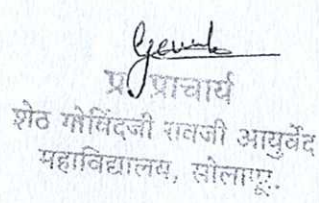 प्र प्राचार्य
शेठ गोविंदजी रावजी आयुर्वेद
महाविद्यालय, सोलापूर.